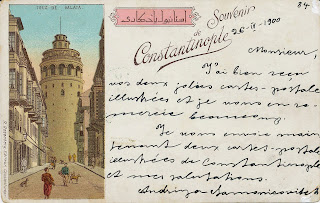 TOUR DE GALATA
84
Souvenir
de
Constantinople
26-II-1900
Monsieur,
J'ai bien reçu
vos deux jolies cartes-postales
illustrées et je vous en re-
mercie beaucoup.
Je vous envoie main-
tenant deux cartes-postales
illustrées de Constantinople
et mes salutations.